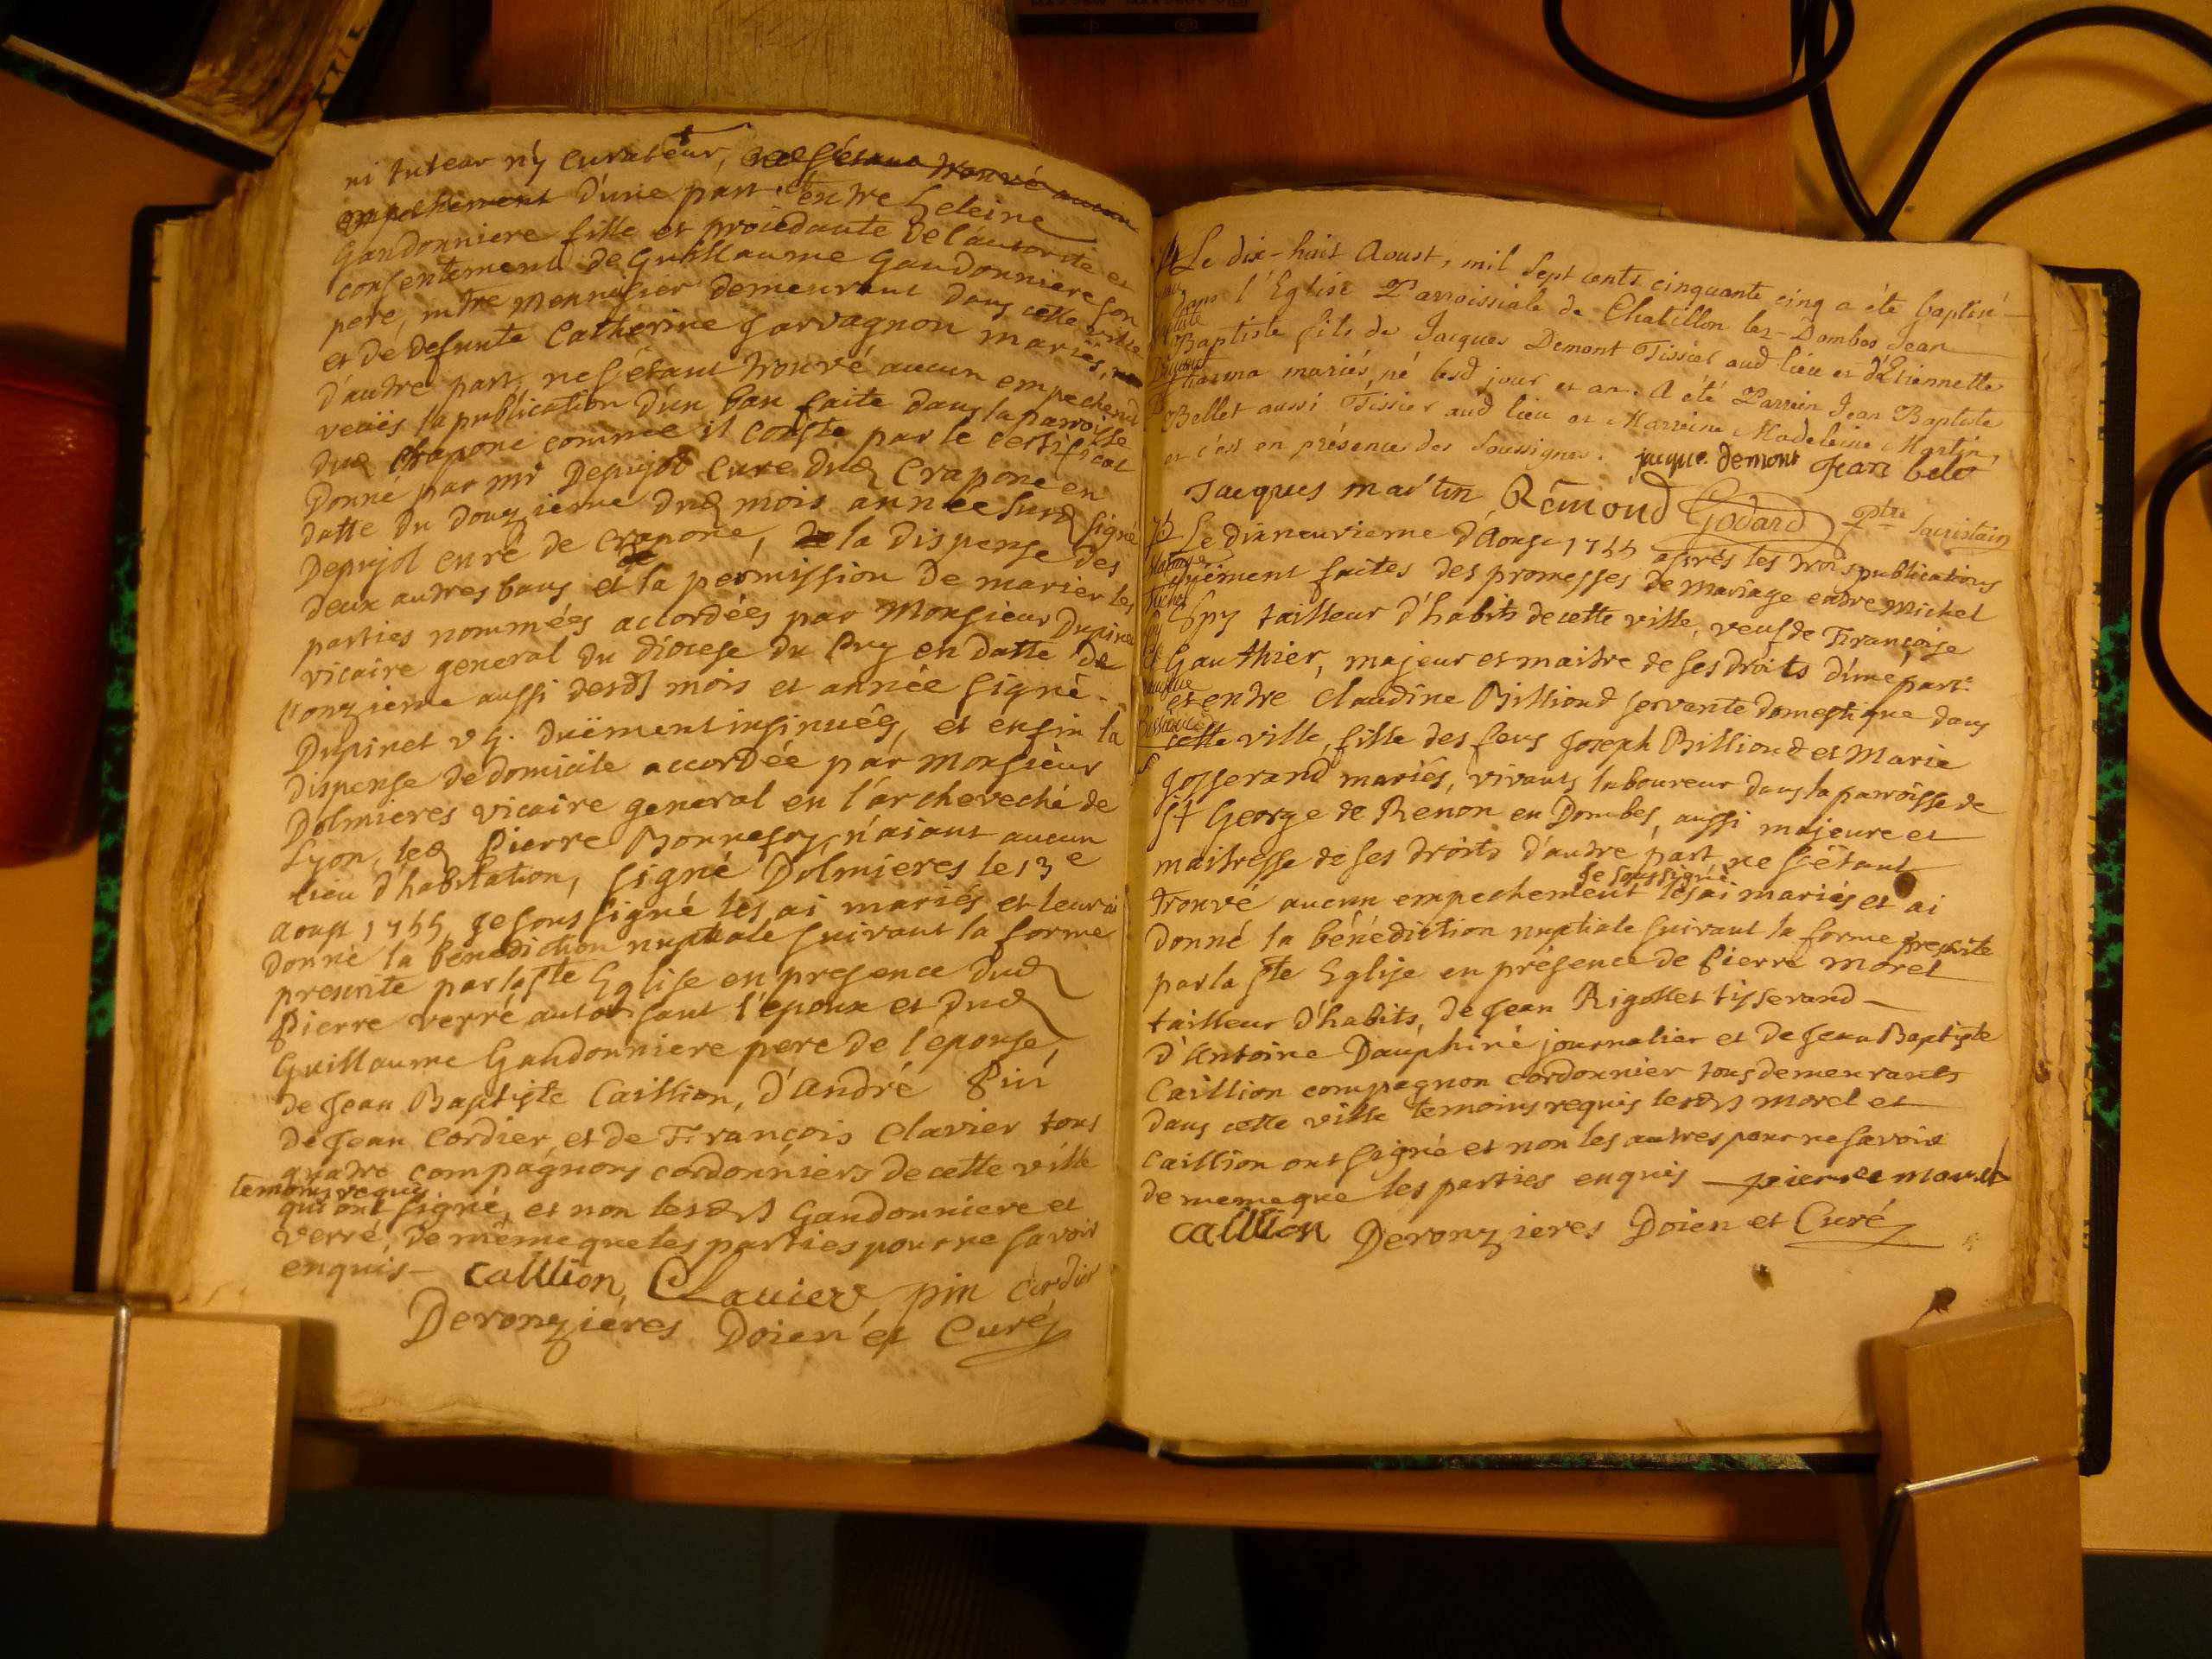 ni tuteur n'y curateur, ne s'étant trouvé aucun
empechement d'une part. et entre heleine
Gandonniere fille et procédante de l'autorité et
consentement de Guillaume Gaudonniere son
pere, mtre mennusier demeurant dans cette ville
et de defunte Catherine Jarvagnon mariés,
d'autre part. ne s'étant trouvé aucun empechemt
veües la publication d'un ban faite dans la parroisse
dud Crapone comme il conste par le certificat
Donné par mr Depujol Curé dud Crapone en
datte du douzieme dud mois année susd signé
Depujol curé de crapone, de la dispense des
deux autres bans et de la permission de marier les
parties nommées accordées par Monsieur Dupinet
vicaire general du diocese du Puy en datte de
l'onzieme aussi desds mois et année signé.
Dupinet v G. duëment insinuées, et enfin la
dispense de domicile accordée par Monsieur
Dolmieres vicaire general en l'archeveché de
Lyon, led Pierre Bonnefoy, n'aiant aucun
lieu d'habitation, signé Dolmieres le 13e
aoust 1755, je soussigné les ai mariés et leur ai
donné la bénédiction nuptiale suivant la forme
prescrite par la ste Eglise en presence dud
Pierre verré autorisant l'epoux et dud
Guillaume Gandonniere pere de l'epouse,
de Jean Baptiste Caillion, d'André Pin
de Jean Cordier, et de François Clavier tous
quatre compagnons cordonniers de cette ville
temoins requis
qui ont signé, et non lesds Gandonniere et
verré, de même que les parties pour ne savoir
enquis — Caillion, Clavier, pin cordier
Deronzieres Doien et Curé
Le dix-huit Aoust, mil sept cents cinquante cinq a été baptisé
dans l'Eglise Parroissiale de Chatillon lez-Dombes Jean
Baptiste fils de Jacques Demont Tissier aud lieu et d'Etiennette
mariés, né lesd jour et an. A été Parrein Jean Baptiste
Bellet aussi Tissier aud lieu et Marreine Madeleine Martin,
et c'est en présence des soussignés. jacque. demont Jean belet
Jacques martin Rémond Godard ptre sacristain
Le dixneuvieme d'Aoust 1755 après les trois publications
duëment faites des promesses de mariage entre Michel
Spy tailleur d'habits de cette ville, veuf de Françoise
Gauthier, majeur et maitre de ses droits d'une part.
et entre Claudine Billioud servante domestique dans
cette ville, fille des feus Joseph Billioud et Marie
Josserand mariés, vivants laboureur dans la parroisse de
St George de Renon en Dombes, aussi majeure et
maitresse de ses droits d'autre part, ne s'étant
je soussigné
trouvé aucun empechement les ai mariés et ai
donné la bénédiction nuptiale suivant la forme prescrite
par la ste Eglise en présence de Pierre morel
tailleur d'habits, de Jean Rigollet tisserand
d'Antoine Dauphiné journalier et de Jean Baptiste
Caillion compagnon cordonnier tous demeurants
dans cette ville temoins requis lesds morel et
Caillion ont signé et non les autres pour ne savoir
de meme que les parties enquis — pierre morel
caillion Deronzieres Doien et Curé